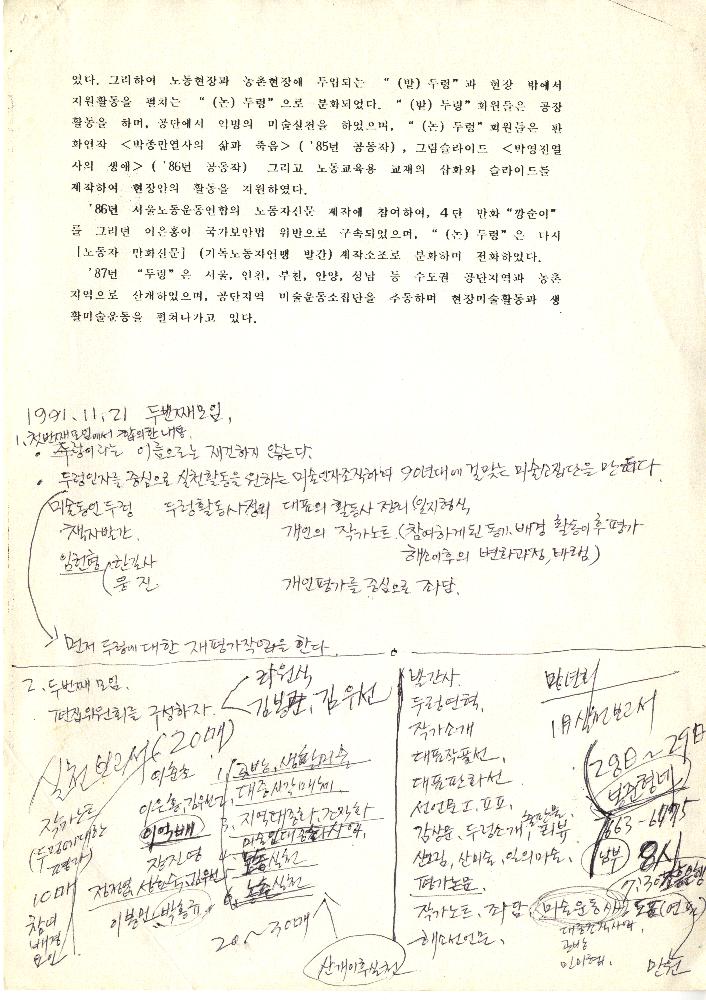 었다. 그리하여 노동현장과 농촌현장에 투입되는 “(밭) 두렁”과 현장 밖에서
지원활동을 펼치는 “(논) 두렁”으로 분화되었다. “(밭) 두렁”회원들은 공장
활동을 하며, 공단에서 익명의 미술실천을 하였으며, “(논) 두렁”회원들은 판
화연작 <박종만열사의 삶과 죽음> ('85년 공동작), 그림슬라이드 <박영진열
사의 생애> ('86년 공동작) 그리고 노동교육용 교재의 삽화와 슬라이드를
제작하여 현장안의 활동을 지원하였다.
'86년 서울노동운동연합의 노동자신문 제작에 참여하여, 4단 만화 “깡순이”
를 그리던 이은홍이 국가보안법 위반으로 구속되었으며, “(논) 두렁”은 다시
[노동자 만화신문] (기독노동자연맹 발간) 제작소조로 분화하며 전화하였다.
'87년 “두렁”은 서울, 인천, 부천, 안양, 성남 등 수도권 공단지역과 농촌
지역으로 산개하였으며, 공단지역 미술운동소집단을 주동하며 현장미술활동과 생
활미술운동을 펼쳐나가고 있다.
1991. 11. 21 두번째모임.
1. 첫번째모임에서 합의한 내용.
· 두렁이라는 이름으로는 재건하지 않는다.
· 두렁인자를 중심으로 실천활동을 원하는 미술인자조직하며 90년대에 걸맞는 미술소집단을 만든다.
미술동인두렁 두렁활동사정리 대표의 활동사 정리 (일지형식
책자발간. 개인의 작가노트 (참여하게된 동기, 배경 활동이후 평가
해소이후의 변화과정, 바램)
임헌형, 한길사
(풍진 개인평가를 중심으로 좌담.
먼저 두렁에 대한 재평가작업을 한다.
2. 두번째 모임.
편집위원회를 구성하자. 라원식
김봉준, 김우선
실천보고서 (20매)
작가노트
(두렁에 대한
평가)
10매
참여
배경
동인
이춘호
이은홍, 김우선
이억배
장진영
이봉연, 박홍규
1.
2. 대중시각매체
3. 지역대중화, 건막화
4.
20~30매
산개이후실천
발간사.
두렁연혁.
작가소개
대표작품선.
대표판화선
선언문 I,
감상문, 두렁소개, 출판물, 리뷰
산그림, 산미술, 일의미술.
평가논문.
작가노트, 좌담 미술운동사
해소선언문.
망년회
1月 실천보고서
(28日~29日
663-6075
남부 8시
7:30
민미협.
만원